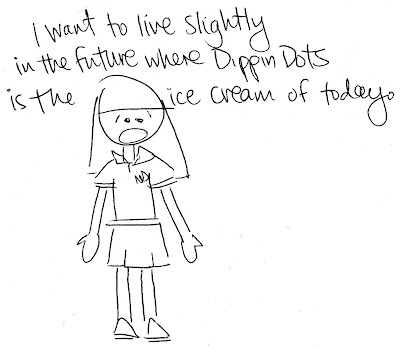 I want to live slightly
in the future where Dippin Dots
is the ice cream of today.